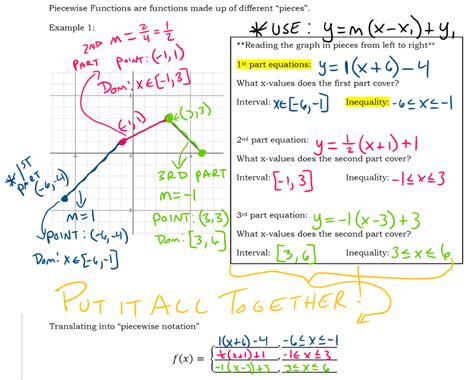 Piecewise Functions are functions made up of different "pieces".
Example 1:
* USE: y=m(x-x₁)+y₁
2ND PART
m=2/4=1/2
POINT: (-1,1)
DOM: X∈[-1,3]
(-1,1)
(3,3)
* 1ST PART
(-6,-4)
m=1
POINT: (-6,-4)
DOM: X∈[-6,-1]
3RD PART
m=-1
POINT: (3,3)
DOM: [3,6]
**Reading the graph in pieces from left to right**
1st part equations: y=1(x+6)-4
What x-values does the first part cover?
Interval: X∈[-6,-1] Inequality: -6≤x≤-1
2nd part equation: y=1/2(x+1)+1
What x-values does the second part cover?
Interval: [-1,3] Inequality: -1≤x≤3
3rd part equation: y=-1(x-3)+3
What x-values does the second part cover?
Interval: [3,6] Inequality: 3≤x≤6
PUT IT ALL TOGETHER!
Translating into "piecewise notation"
f(x) = { 1(x+6)-4, -6≤x≤-1
1/2(x+1)+1, -1≤x≤3
-1(x-3)+3, 3≤x≤6